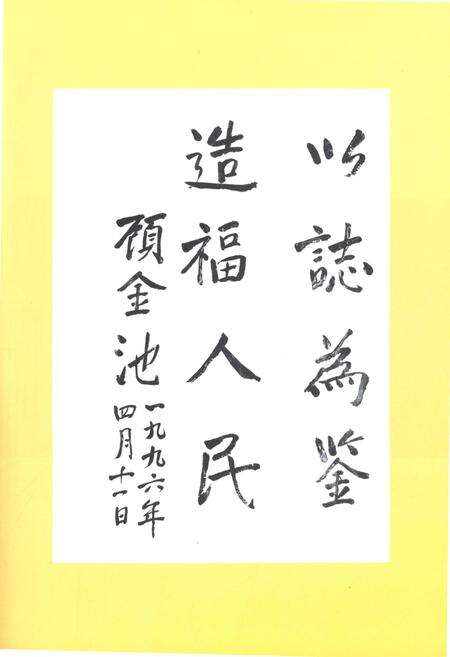 以誌為鉴
造福人民
顾金池
一九九六年
四月十一日